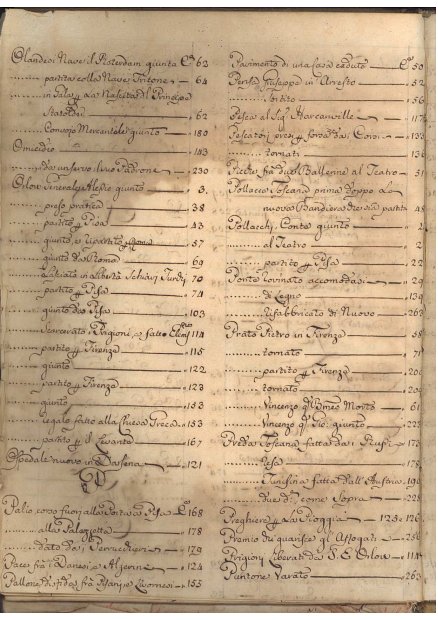 Olandesi Nave il Roterdam giunta C.º 62
partita colla Nave Tritone 64
in Gala p la Nascita del Principe
Statolder 62
Convojo Mercantile giunto 180
Omicidio 143
da un servo il suo Padrone 230
Orlow Generale giunto 3
preso pratica 38
partito p Pisa 43
giunto, e ripartito 57
giunto da Roma 69
Lasciato in libertà Schiavi Turchi 70
partito p Pisa 74
giunto da Pisa 103
Scarcerato i Prigioni, e fatto 114
partito p Firenze 115
giunto 122
partito p Firenze 123
giunto 153
regalo fatto alla Chiesa Greca 153
partito p il Levante 167
Ospedale nuovo in Darsena 121
P
Palio corso fuori alla Porta a Pisa C.º 168
alla Palazzetta 178
dato dai Perucchieri 179
Pace fra i Danesi e Algerini 124
Pallone disfida fra Pisani, e Livornesi 155
Pavimento di una Casa caduto C.º 50
Pensa Giuseppe in Arresto 52
Sortito 56
Pesca al Sig.r Harcanville 117
Pescatori presi p forza dai Corsi 133
tornati 136
Picche fra due Ballerine al Teatro 51
Pollacca Toscana prima doppo la
nuova Bandiera che sia partita 48
Pollarchj, Conte giunto 2
al Teatro 2
partito p Pisa 22
Ponte rovinato accomodasi 29
di Legno 139
rifabbricato di Nuovo 263
Prato Pietro in Firenze 58
tornato 71
partito p Firenze 200
tornato 206
Vincenzo 61
Vincenzo giunto 225
Preda Toscana fatta dai Russi 173
resa 178
Tunisina fatta dall'Austria 190
due d.º come Sopra 228
Preghiere p la Pioggia 125 e 126
Premio di guarire gl'Affogati 250
Prigioni liberati da S. E. Orlow 114
Puntone Varato 263